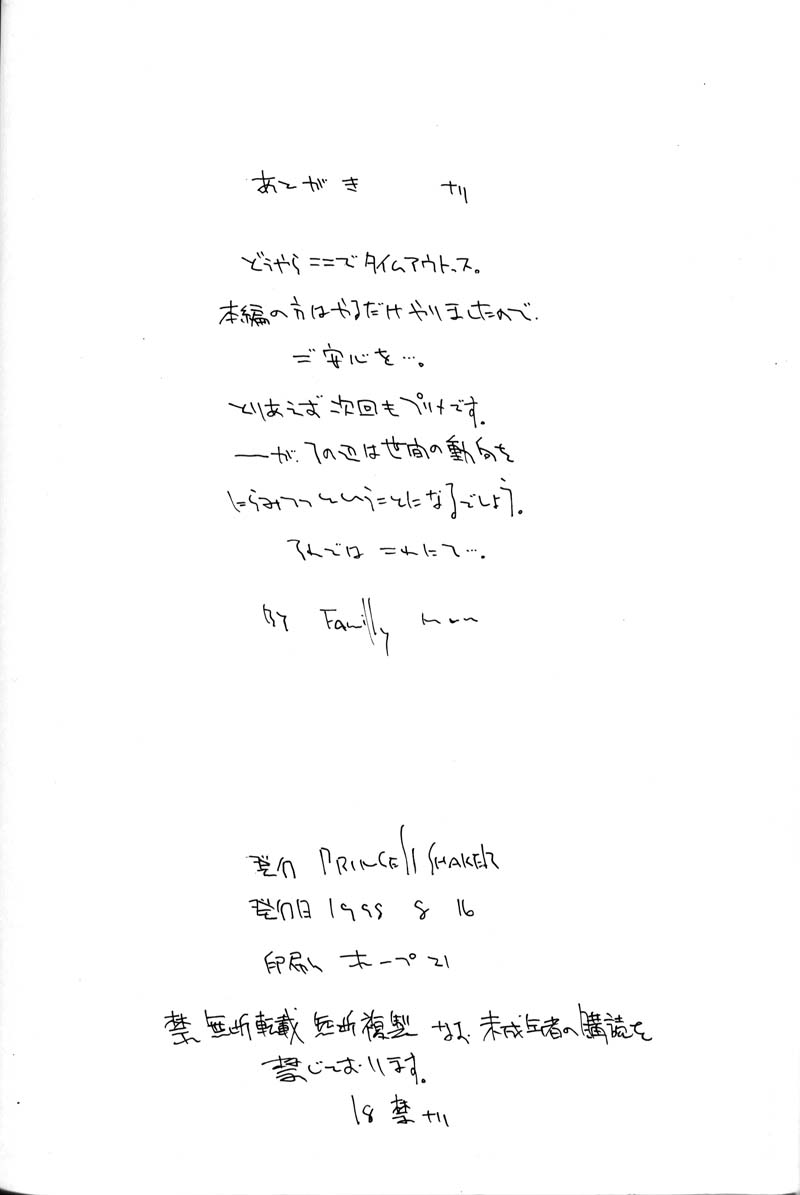 あとがき ナリ
どうやらここでタイムアウトっス。
本編の方はやるだけやりましたので.
ご安心を…。
とりあえず次回もプリメです。
—が、その辺は世間の動向を
にらみつつということになるでしょう。
それでは これにて…。
BY Familly
発行 PRINCESS SHAKER
発行日 1998 8 16
印刷 ホープ21
禁 無断転載 無断複製 なお、未成年者の購読を
禁じております。
18禁ナリ